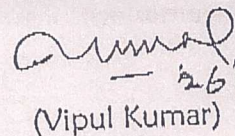 '26
(Vipul Kumar)